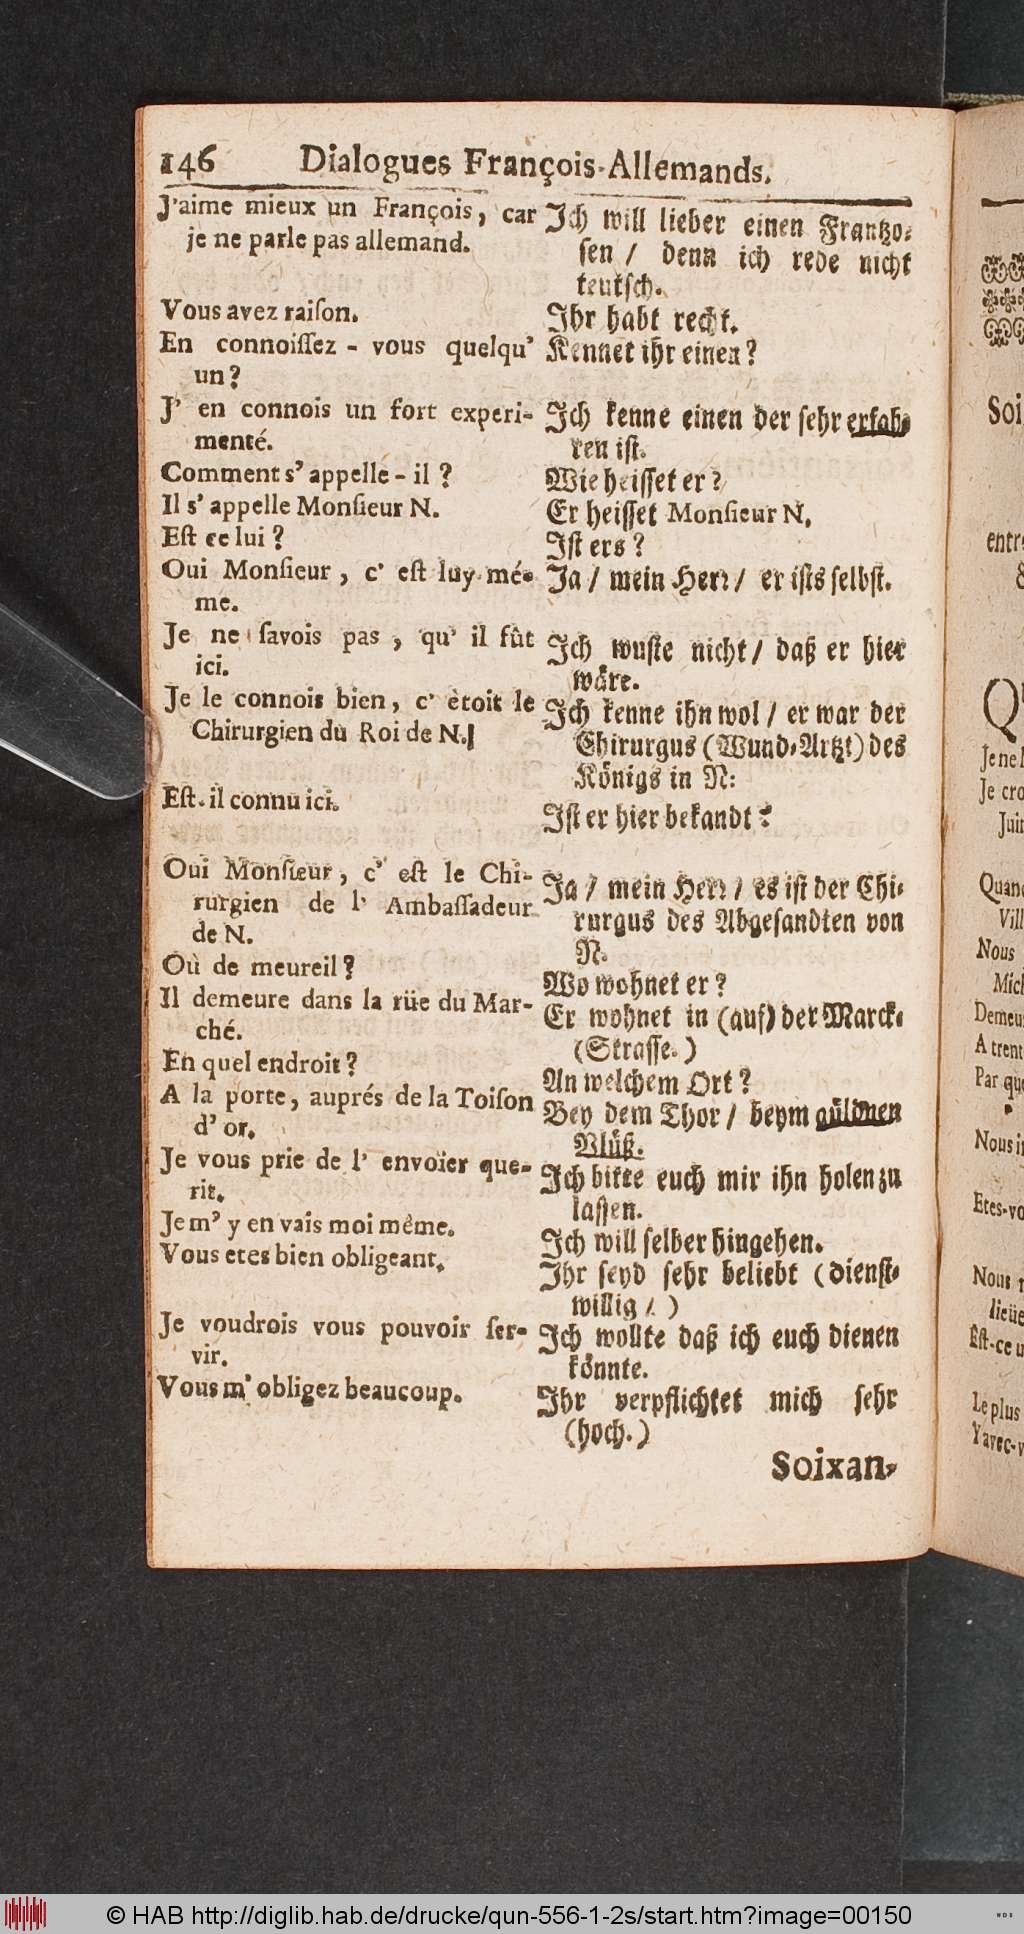 146 Dialogues François-Allemands.
J'aime mieux un François, car
je ne parle pas allemand.
Vous avez raiſon.
En connoiſſez-vous quelqu'
un?
J' en connois un fort experi-
menté.
Comment s' appelle-il?
Il s' appelle Monſieur N.
Eſt ce lui?
Oui Monſieur, c' eſt luy mé-
me.
Je ne ſavois pas, qu' il fût
ici.
Je le connois bien, c' ètoit le
Chirurgien du Roi de N.
Eſt-il connu ici.
Oui Monſieur, c' eſt le Chi-
rurgien de l' Ambaſſadeur
de N.
Où de meureil?
Il demeure dans la rüe du Mar-
ché.
En quel endroit?
A la porte, auprés de la Toiſon
d' or.
Je vous prie de l' envoïer que-
rir.
Je m' y en vais moi mème.
Vous etes bien obligeant.
Je voudrois vous pouvoir ſer-
vir.
Vous m' obligez beaucoup.
Ich will lieber einen Frantzo-
ſen / denn ich rede nicht
teutſch.
Ihr habt recht.
Kennet ihr einen?
Ich kenne einen der ſehr erfah-
ren iſt.
Wie heiſſet er?
Er heiſſet Monſieur N.
Iſt ers?
Ja / mein Herr / er iſts ſelbſt.
Ich wuſte nicht / daß er hier
wäre.
Ich kenne ihn wol / er war der
Chirurgus (Wund-Artzt) des
Königs in N:
Iſt er hier bekandt?
Ja / mein Herr / es iſt der Chi-
rurgus des Abgeſandten von
N.
Wo wohnet er?
Er wohnet in (auf) der Marck-
(Straſſe.)
An welchem Ort?
Bey dem Thor / beym güldnen
Vlüß.
Ich bitte euch mir ihn holen zu
laſſen.
Ich will ſelber hingehen.
Ihr ſeyd ſehr beliebt (dienſt-
willig /.)
Ich wollte daß ich euch dienen
könnte.
Ihr verpflichtet mich ſehr
(hoch.)
Soixan-
Soi
entre
Je ne
Je cro
Juin
Quand
Vill
Nous
Mich
Demeu
A trent
Par que
Nous
Etes-vo
Nous
lieüe
Eſt-ce
Le plus
Y avec-v
© HAB http://diglib.hab.de/drucke/qun-556-1-2s/start.htm?image=00150